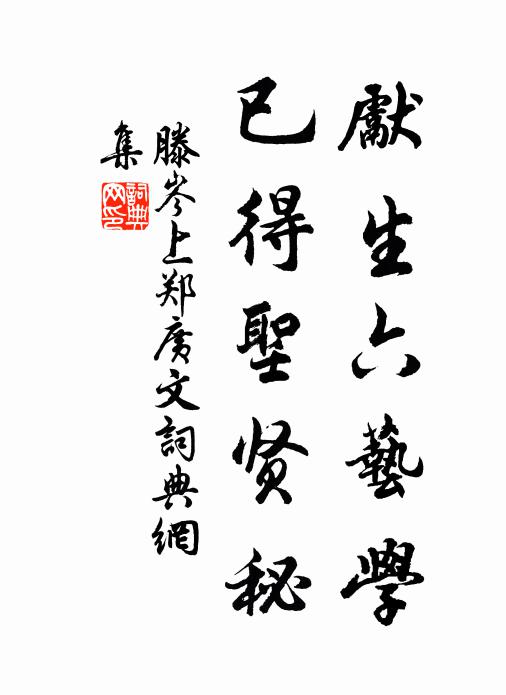 獻生六藝學
已得聖贤秘
滕岑上郑廣文詞典網
集
詞典
网印